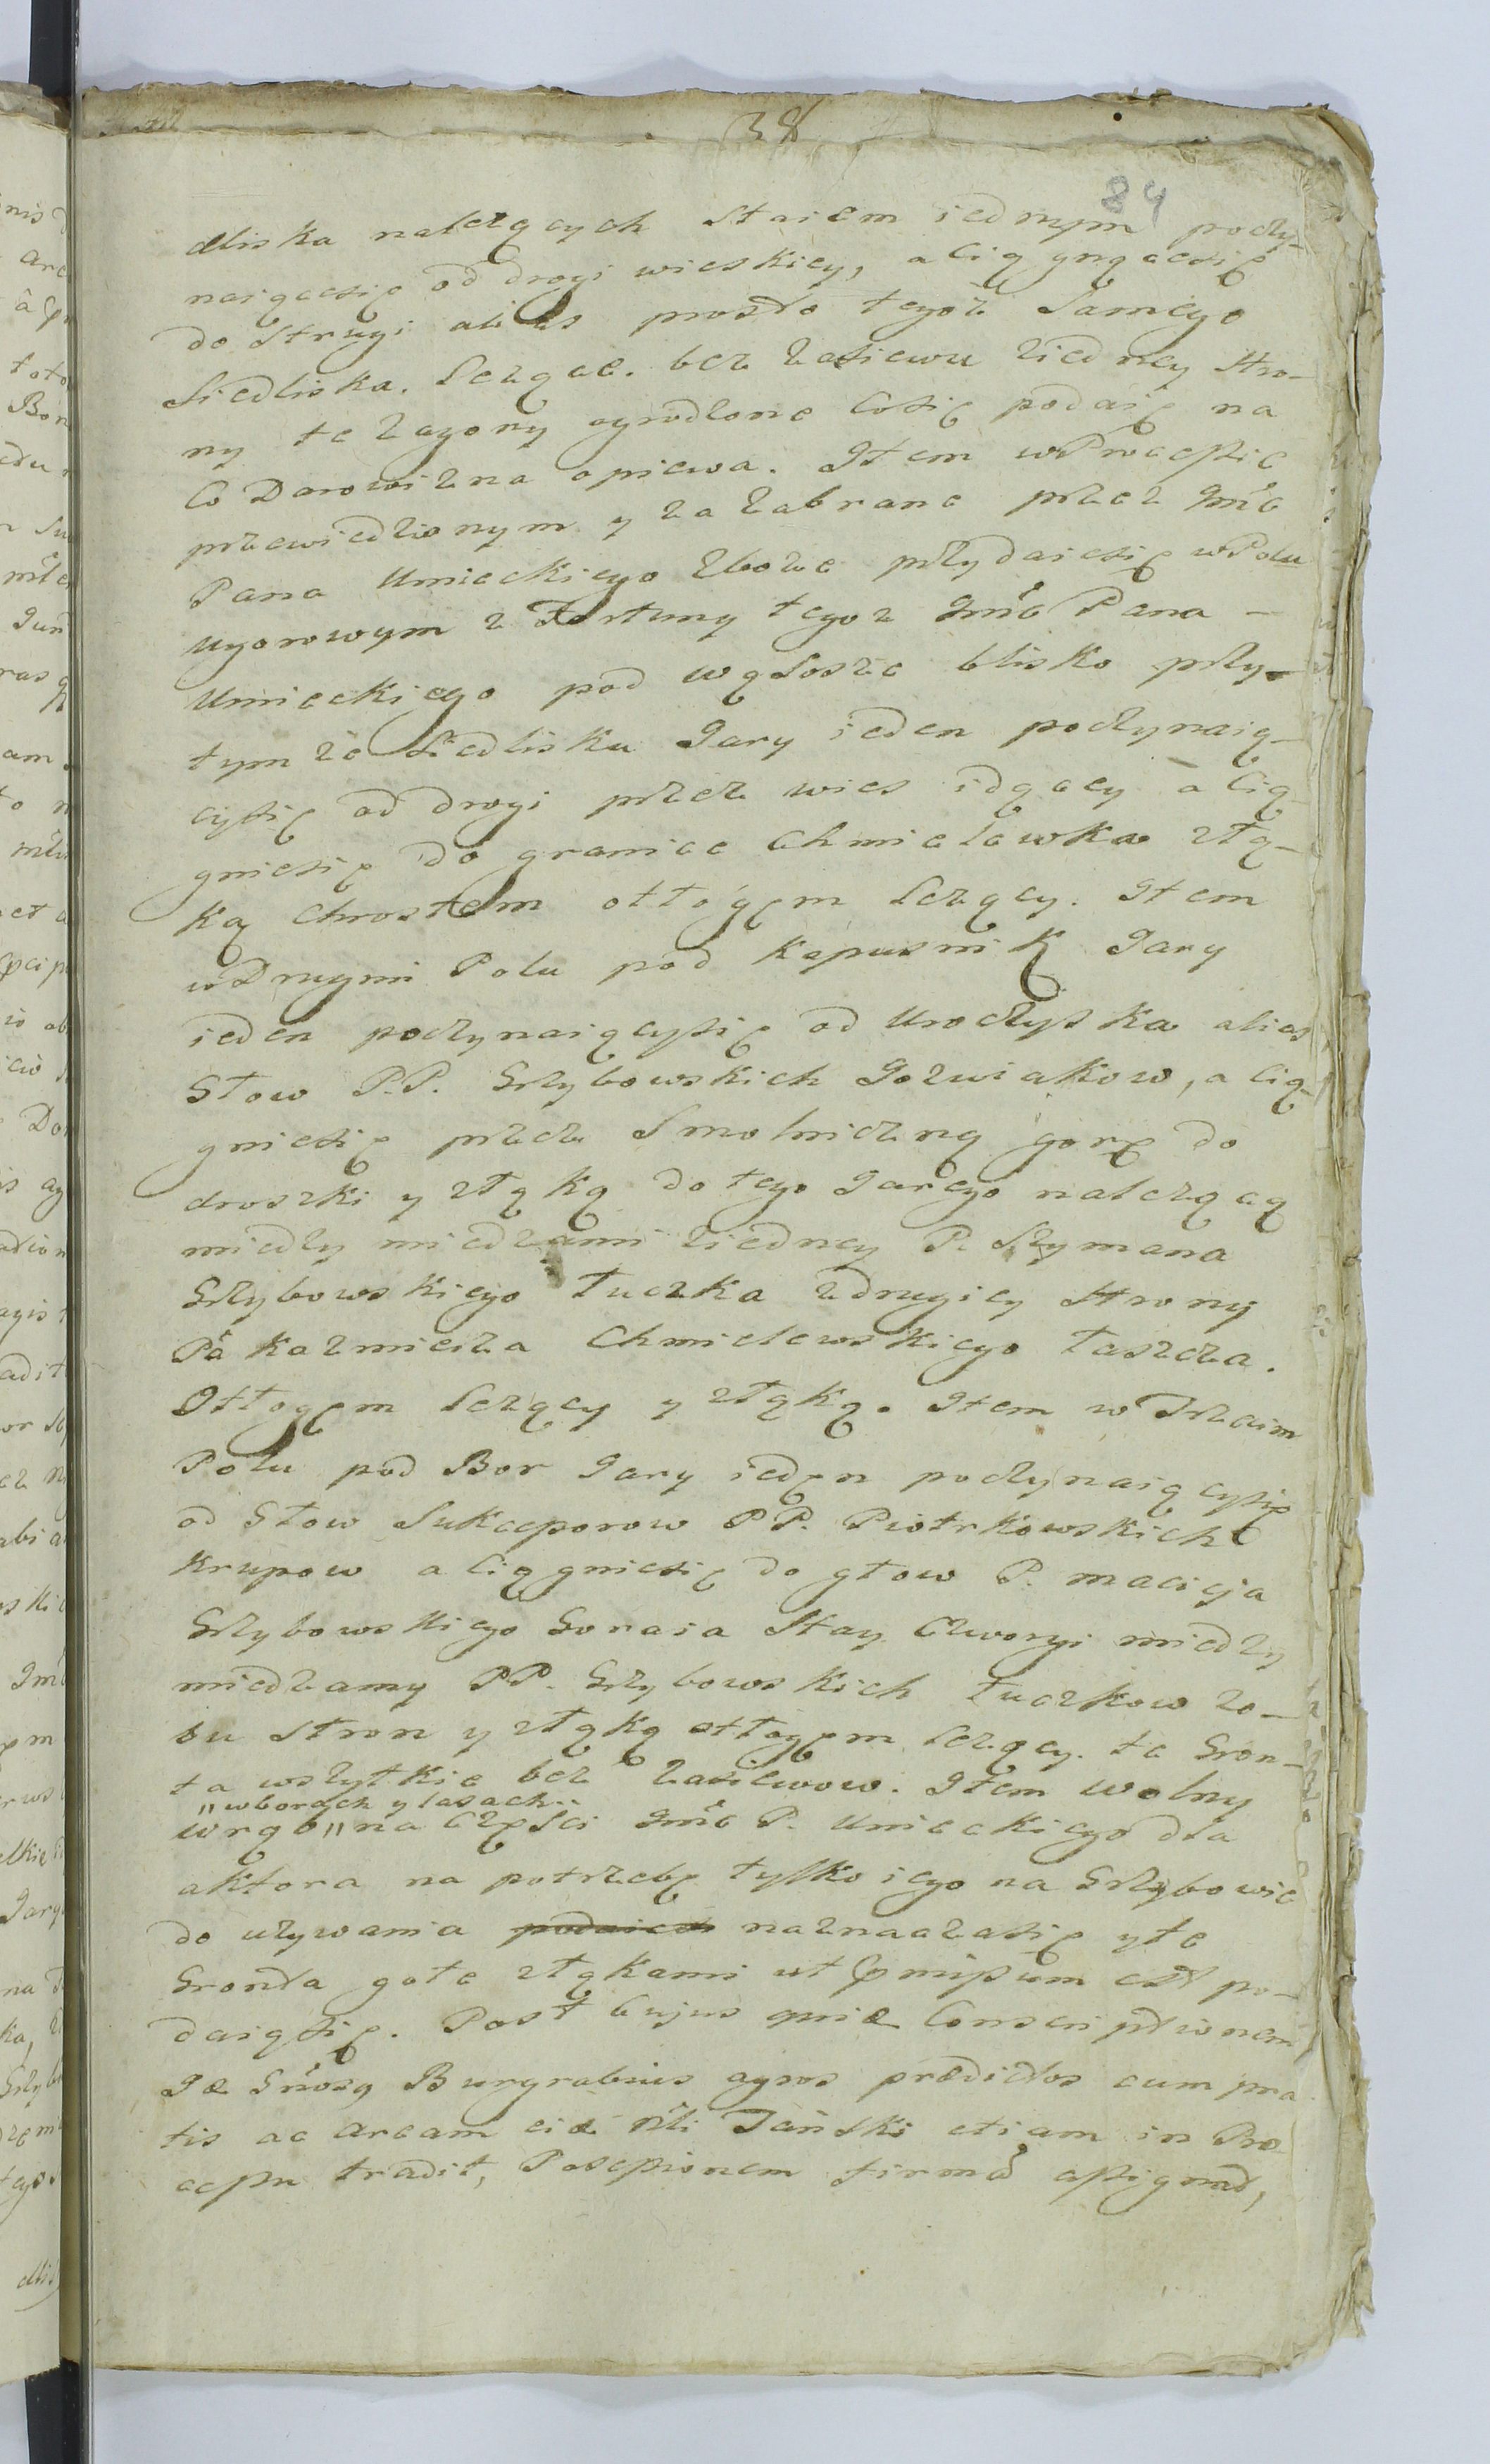 38
84
dliska należących Staiem iednym poczy-
naiącesię od drogi wieskiey, a ciągnącesię
do Strugi alias prosto tegoż Samego
Siedliska. Leżące. bez Zasiewu ziedney stro-
ny te zagony ogrodzone Cosię podaię na
Co Darowizna opiewa. Item wProcessie
przewiedzionym y za Zabrane przez Jmć
Pana Umieckiego zboże przydaiesię wPolu
Ugorowym z Fortuny tegoż Jmć Pana -
Umieckiego pod wąsosze blisko przy
tymże Siedlisku Jary ieden poczynaią-
cysię od drogi przez wies idącey a cią-
gniesię do granice Chmielewka złą-
ką Chrostem ołłogem Leżący. Item
wDrugim Polu pod Kapusnik Jary
ieden poczynaiącysię od Uroczyska alias
Głow P.P. Grzybowskich Jozwiakow, a cią-
gniesię przez Smolniczną gorę do
droszki y złąką do tego Jarego należącą
miedzy miedzami ziedney P. Szymana
Grzybowskiego Łuczka zdrugiey Strony
Pa Kazmierza Chmielewskiego Łaszcza.
Ołłogem Leżący y złąką. Item w Trzecim
Polu pod Bor Jary ieden poczynaiącysię
od Głow Sukcessorow PP. Piotrkowskich
Krupow a ciągniesię do głow P. macieja
Grzybowskiego Goraia Stay Czworgi miedzy
miedzamy PP. Grzybowskich Łuczkow zo-
bu Stron y złąką ołłogem Leżący. te Gron-
ta wszytkie bez Zasiewow. Item wolny
"wborach y lasach"
wrąb " na Częsci Jmć P. Umieckiego dla
aktora na potrzebę tylko iego na Grzybowie
do używania podaiesi naznaczasię yte
Gronta gołe złąkami ut pmissum est po-
daiąsię. Post cujus qnie Conscriptionem
Jde Gnosg Burgrabius agros prædictos cum pra
tis ac aream eide Nli Jański etiam in Pro
cessu tradit, Possessionem firmat assignat,